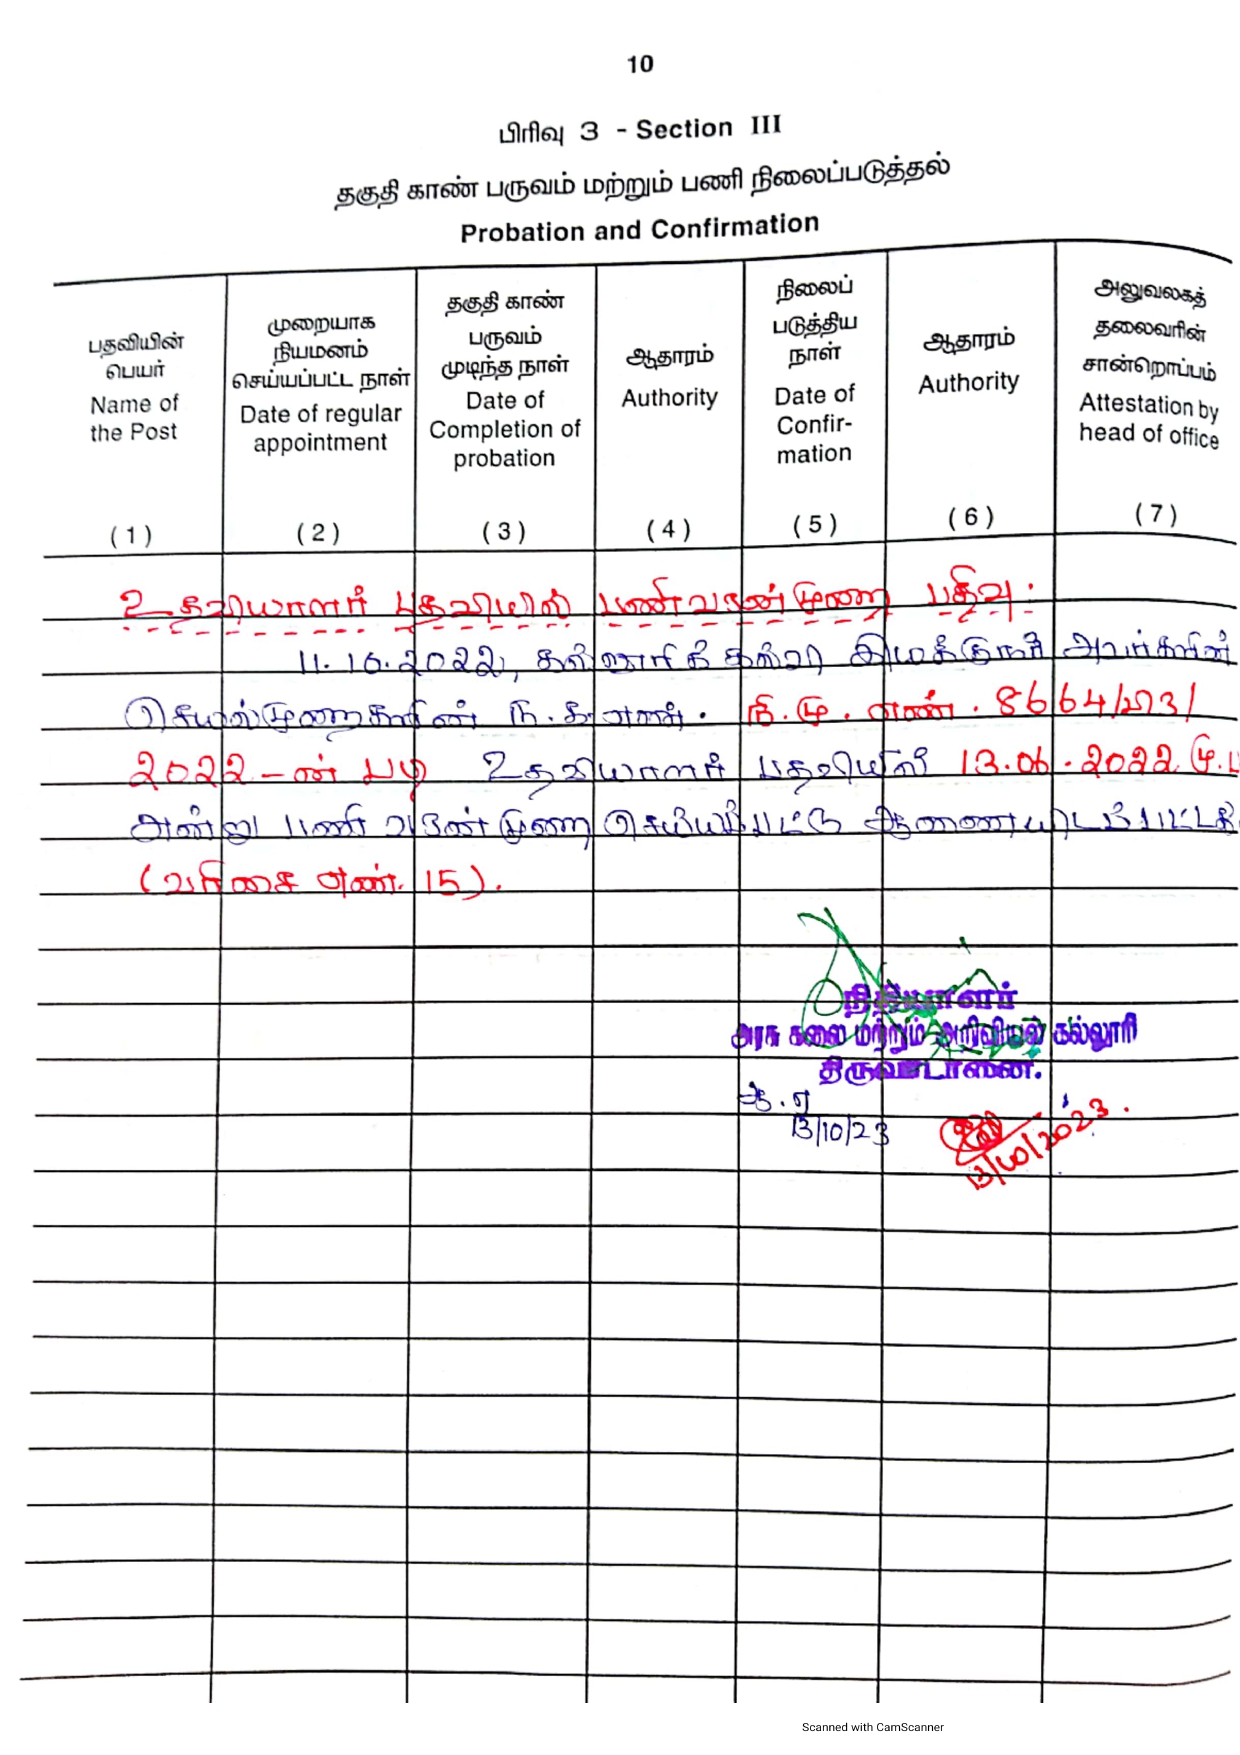 10
பிரிவு 3 - Section III
தகுதி காண் பருவம் மற்றும் பணி நிலைப்படுத்தல்
Probation and Confirmation
பதவியின்
பெயர்
Name of
the Post
(1)
முறையாக
நியமனம்
செய்யப்பட்ட நாள்
Date of regular
appointment
(2)
தகுதி காண்
பருவம்
முடிந்த நாள்
Date of
Completion of
probation
(3)
ஆதாரம்
Authority
(4)
நிலைப்
படுத்திய
நாள்
Date of
Confir-
mation
(5)
ஆதாரம்
Authority
(6)
அலுவலகத்
தலைவரின்
சான்றொப்பம்
Attestation by
head of office
(7)
உதவியாளர் பதவியில் பணிவரன்முறை பதிவு :
11.10.2022, கல்லூரிக் கல்வி இயக்குநர் அவர்களின்
செயல்முறைகளின் ந.க.எண். நி.மு. எண். 8664/ஏ3/
2022-ன் படி உதவியாளர் பதவியில் 13.06.2022 மு.ப
அன்று பணி வரன்முறை செய்யப்பட்டு ஆணையிடப்பட்டது
(வரிசை எண். 15).
நிதியாளர்
அரசு கலை மற்றும் அறிவியல் கல்லூரி
திருவாடானை.
13/10/23
13/10/2023.
Scanned with CamScanner